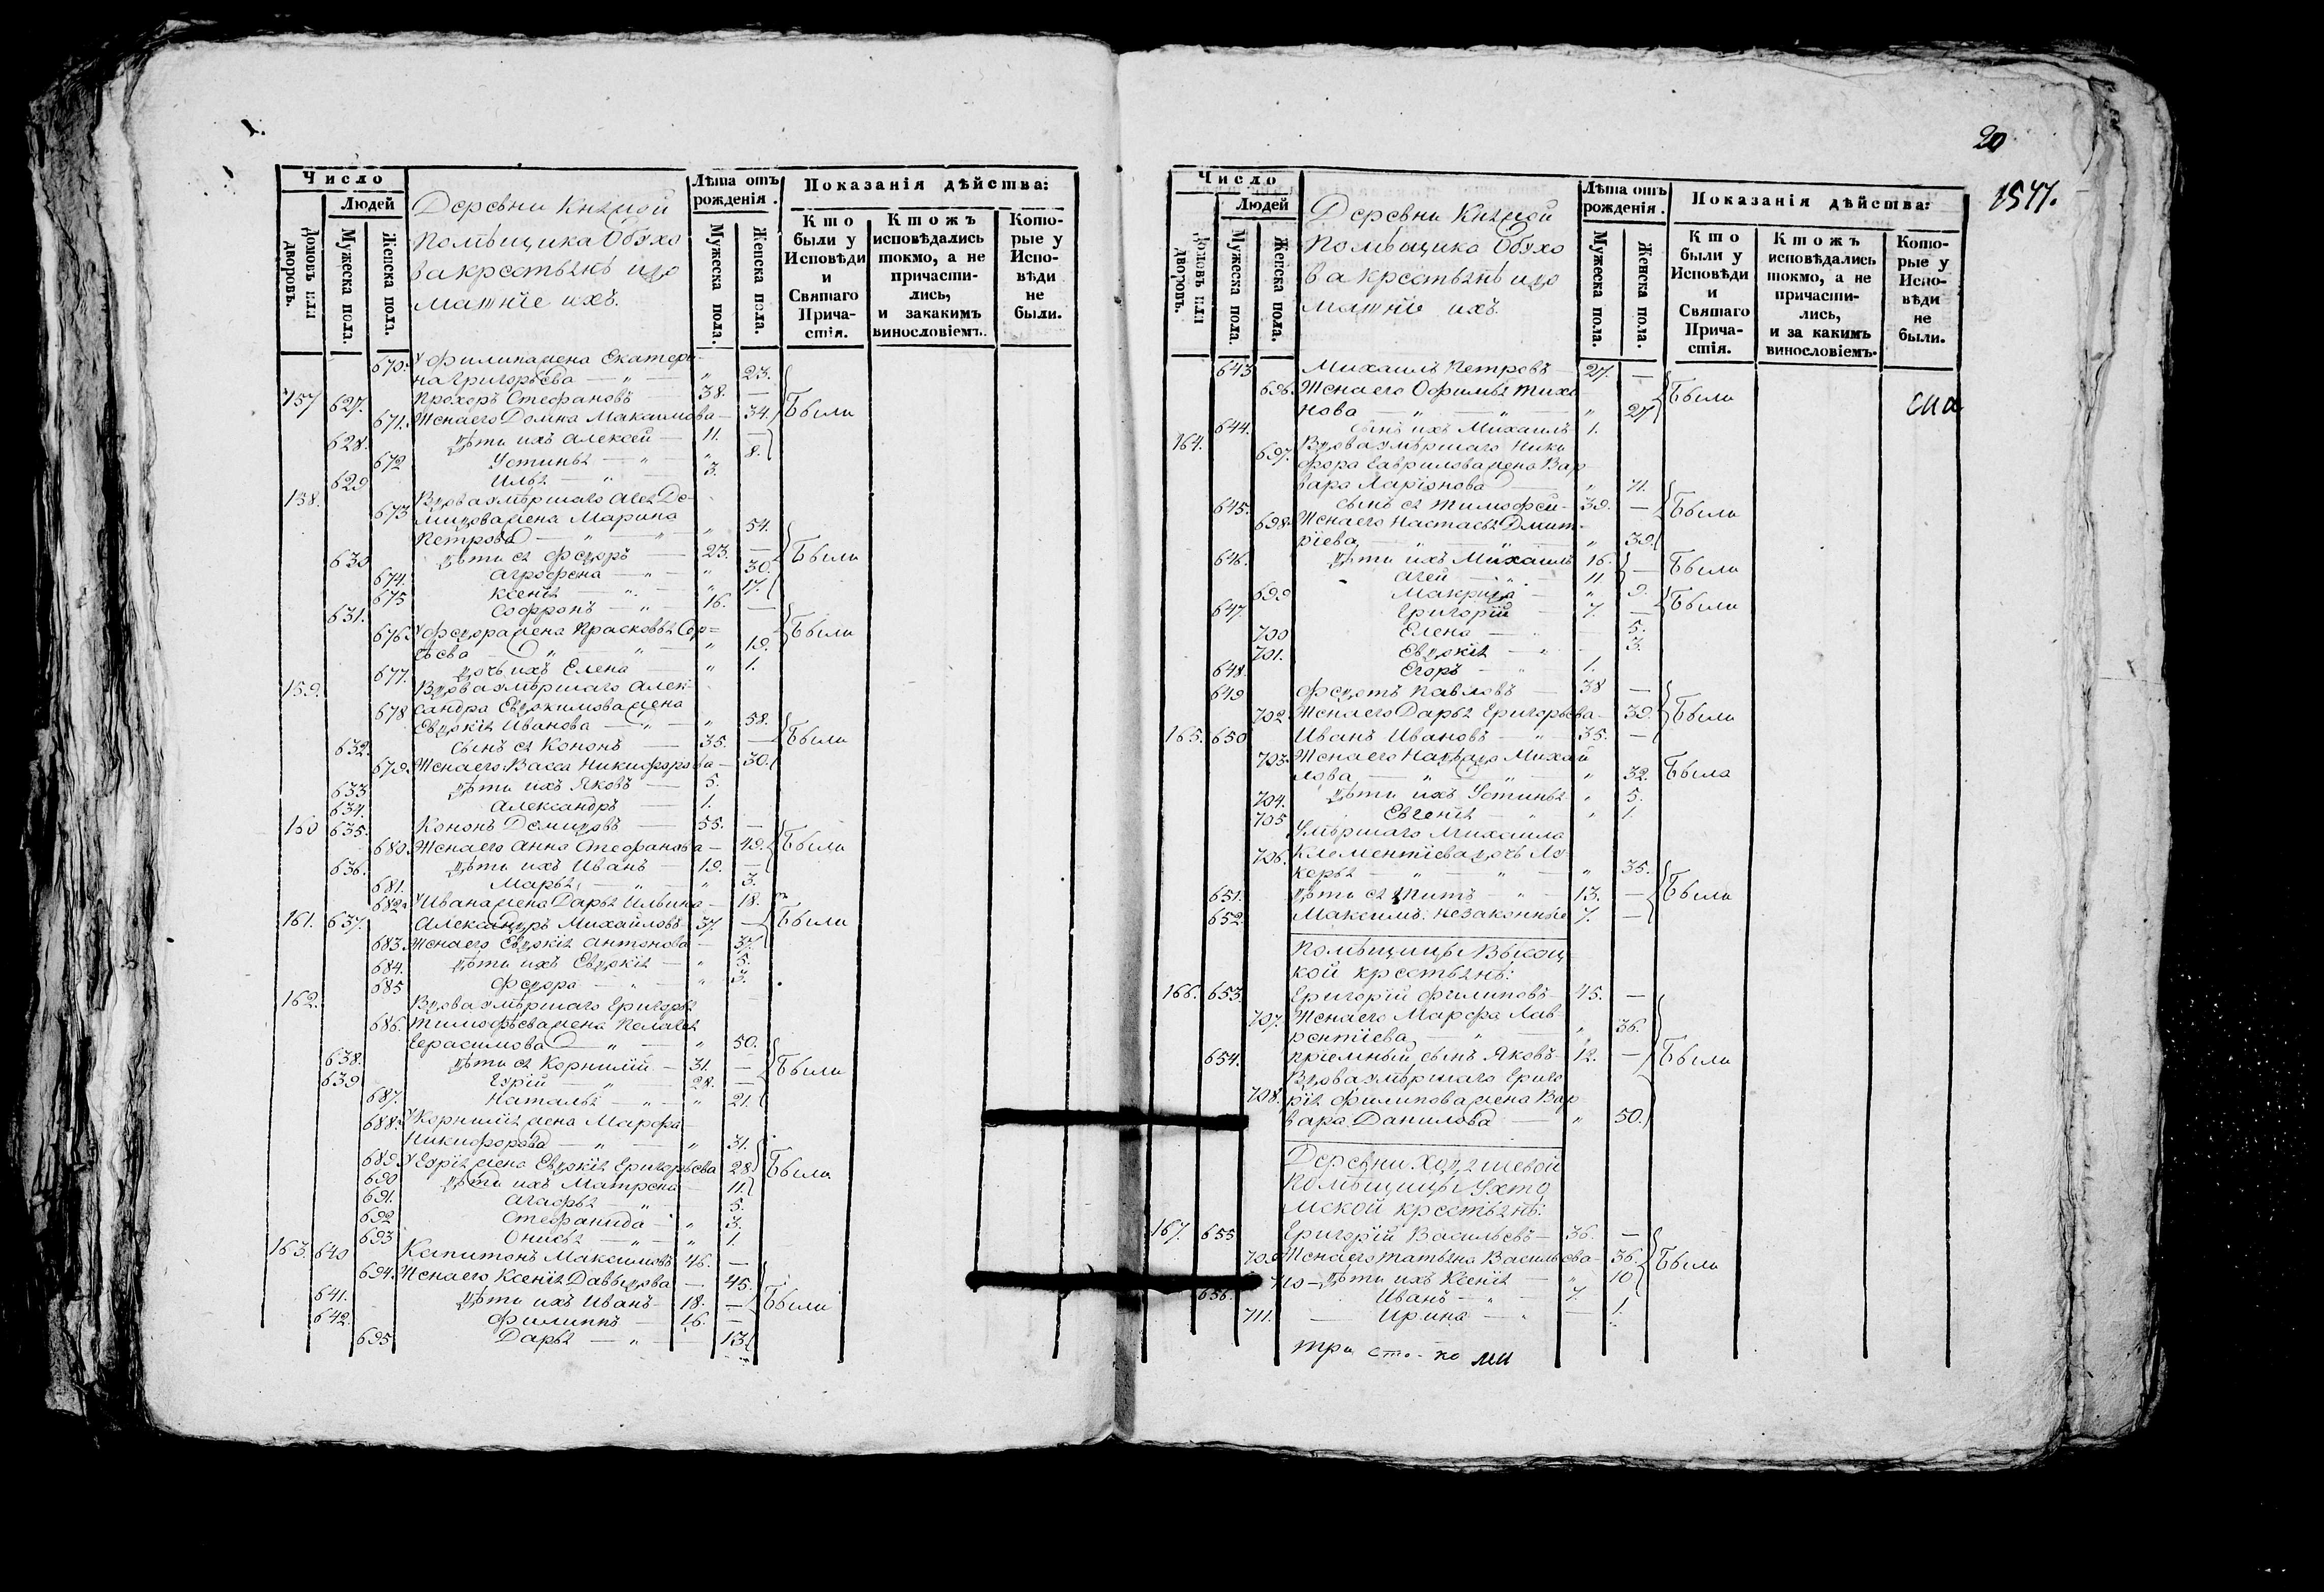 1.
Число
Людей
Домовъ или дворовъ.
Мужеска пола.
Женска пола.
Деревни Княжой
Помѣщика Обухо
ва крестьянѣ и до
матніе ихъ.
Лѣта отъ рожденія.
Мужеска пола.
Женска пола.
Показанія дѣйства:
Кто были у Исповѣди и Святаго Причастія.
Ктожъ исповѣдались токмо, а не причастились, и закакимъ винословіемъ.
Которые у Исповѣди не были.
670. У Филипа жена Екатери-
на Григорьева — „ — „ 23.
157 627. Прохоръ Стефановъ — 38. —
671. Жена его Домна Максимова — 34. Были
628. Дѣти ихъ Алексей — 11. —
672 Устинья — „ „ 8.
629 Илья — „ 3.
158. Вдова умѣршаго Агея Де-
673 мидова жена Марина
Петрова — „ — „ — „ 54.
630 Дѣти ея Федоръ — 23. — Были
674. Агрофена — „ — „ 30.
675 Ксенія — „ — „ 17.
631. Софронъ — „ 16. —
676. У Федора жена Прасковья Сер= Были
гѣева — „ — „ — „ 19.
677. Дочь ихъ Елена — „ 1.
159. Вдова умѣршаго Алек-
678 сандра Евдокимова жена
Евдокія Иванова — „ — „ 58.
632. Сынъ ея Кононъ — 35. — Были
679. Жена его Васса Никифорова — 30.
633 Дѣти ихъ Яковъ — 5.
634. Александръ — 1.
160 635. Кононъ Демидовъ — 55. —
680. Жена его Анна Стефанова — 49. Были
636. Дѣти ихъ Иванъ — 19. —
681. Марья — „ — „ 3.
682. У Ивана жена Дарья Ильина — 18.
161. 637. Александръ Михайловъ 37 — Были
683. Жена его Евдокія Антонова — 37.
684. Дѣти ихъ Евдокія — „ 5.
685 Федора — „ — „ 3.
162. Вдова умѣршаго Григорья
686. Тимофѣева жена Пелагея
Герасимова — „ — „ 50.
638. Дѣти ея Корнилій — 31. — Были
639 Гурій — „ — 28. —
687. Наталья — „ — „ 21.
688. У Корнилія жена Марфа
Никифорова — „ — „ 31.
689. У Гурія жена Евдокія Григорьева 28 Были
690 Дѣти ихъ Матрена — 11.
691. Агафья — „ — 5.
692 Стефанида — „ 3.
693 Онисья — „ — „ 1.
163. 640 Капитонъ Максимовъ 46. —
694. Жена его Ксенія Давыдова — 45.
641. Дѣти ихъ Иванъ — 18. — Были
642. Филиппъ — 16. —
695. Дарья — „ — 13
20
1547.
Число
Людей
Домовъ или дворовъ.
Мужеска пола.
Женска пола.
Деревни Княжой
Помѣщика Обухо
ва крестьянѣ и до
матніе ихъ.
Лѣта отъ рожденія.
Мужеска пола.
Женска пола.
Показанія дѣйства:
Кто были у Исповѣди и Святаго Причастія.
Ктожъ исповѣдались токмо, а не причастились, и за какимъ винословіемъ.
Которые у Исповѣди не были.
643 Михаилъ Петровъ — 27. —
696. Жена его Офимья Тихо Были
нова — „ — „ — „ 27
644. Сынъ ихъ Михаилъ 1.
164. Вдова умѣршаго Ники
697. фора Гаврилова жена Вар
вара Ларіонова — „ 71.
645. Сынъ ея Тимофей — 39. — Были
698. Жена его Настасья Дмит-
ріева — „ — „ — „ 39.
646. Дѣти ихъ Михаилъ 16. — Были
Агей — „ 11
699 Макрида — „ 9. Были
647. Григорій — 7. —
700 Елена — „ — 5.
701. Евдокія — „ — 3.
648. Егоръ — „ 1.
649 Федотъ Павловъ — 38 —
702. Жена его Дарья Григорьева — 39. Были
165. 650 Иванъ Ивановъ — „ 35. —
703. Жена его Надежда Михай
лова — „ — „ — „ 32. Была
704. Дѣти ихъ Устинья „ 5.
705 Евгенія — „ „ 1
Умѣршаго Михаила
706. Клементіева дочь Лу
керья — „ — „ — „ 35.
651. Дѣти ея Титъ — „ — 13. — Были
652. Максимъ: незаконные 7. —
Помѣщицы Высоц
кой крестьянѣ:
166. 653. Григорій Филиповъ — 45. —
707. Жена его Марфа Лав
рентіева — „ „ 36.
654. Пріемный сынъ Яковъ — 12. — Были
Вдова умѣршаго Григо
708. рія Филипова жена Вар
вара Данилова — „ 50.
Помѣщицы Ухто
мской крестьянѣ:
167. 655 Григорій Васильевъ — 36. —
709 Жена его Татьяна Васильева — 36. Были
710 — Дѣти ихъ Ксенія — „ 10
656. Иванъ — „ — 7.
711. Ирина — „ — 1.